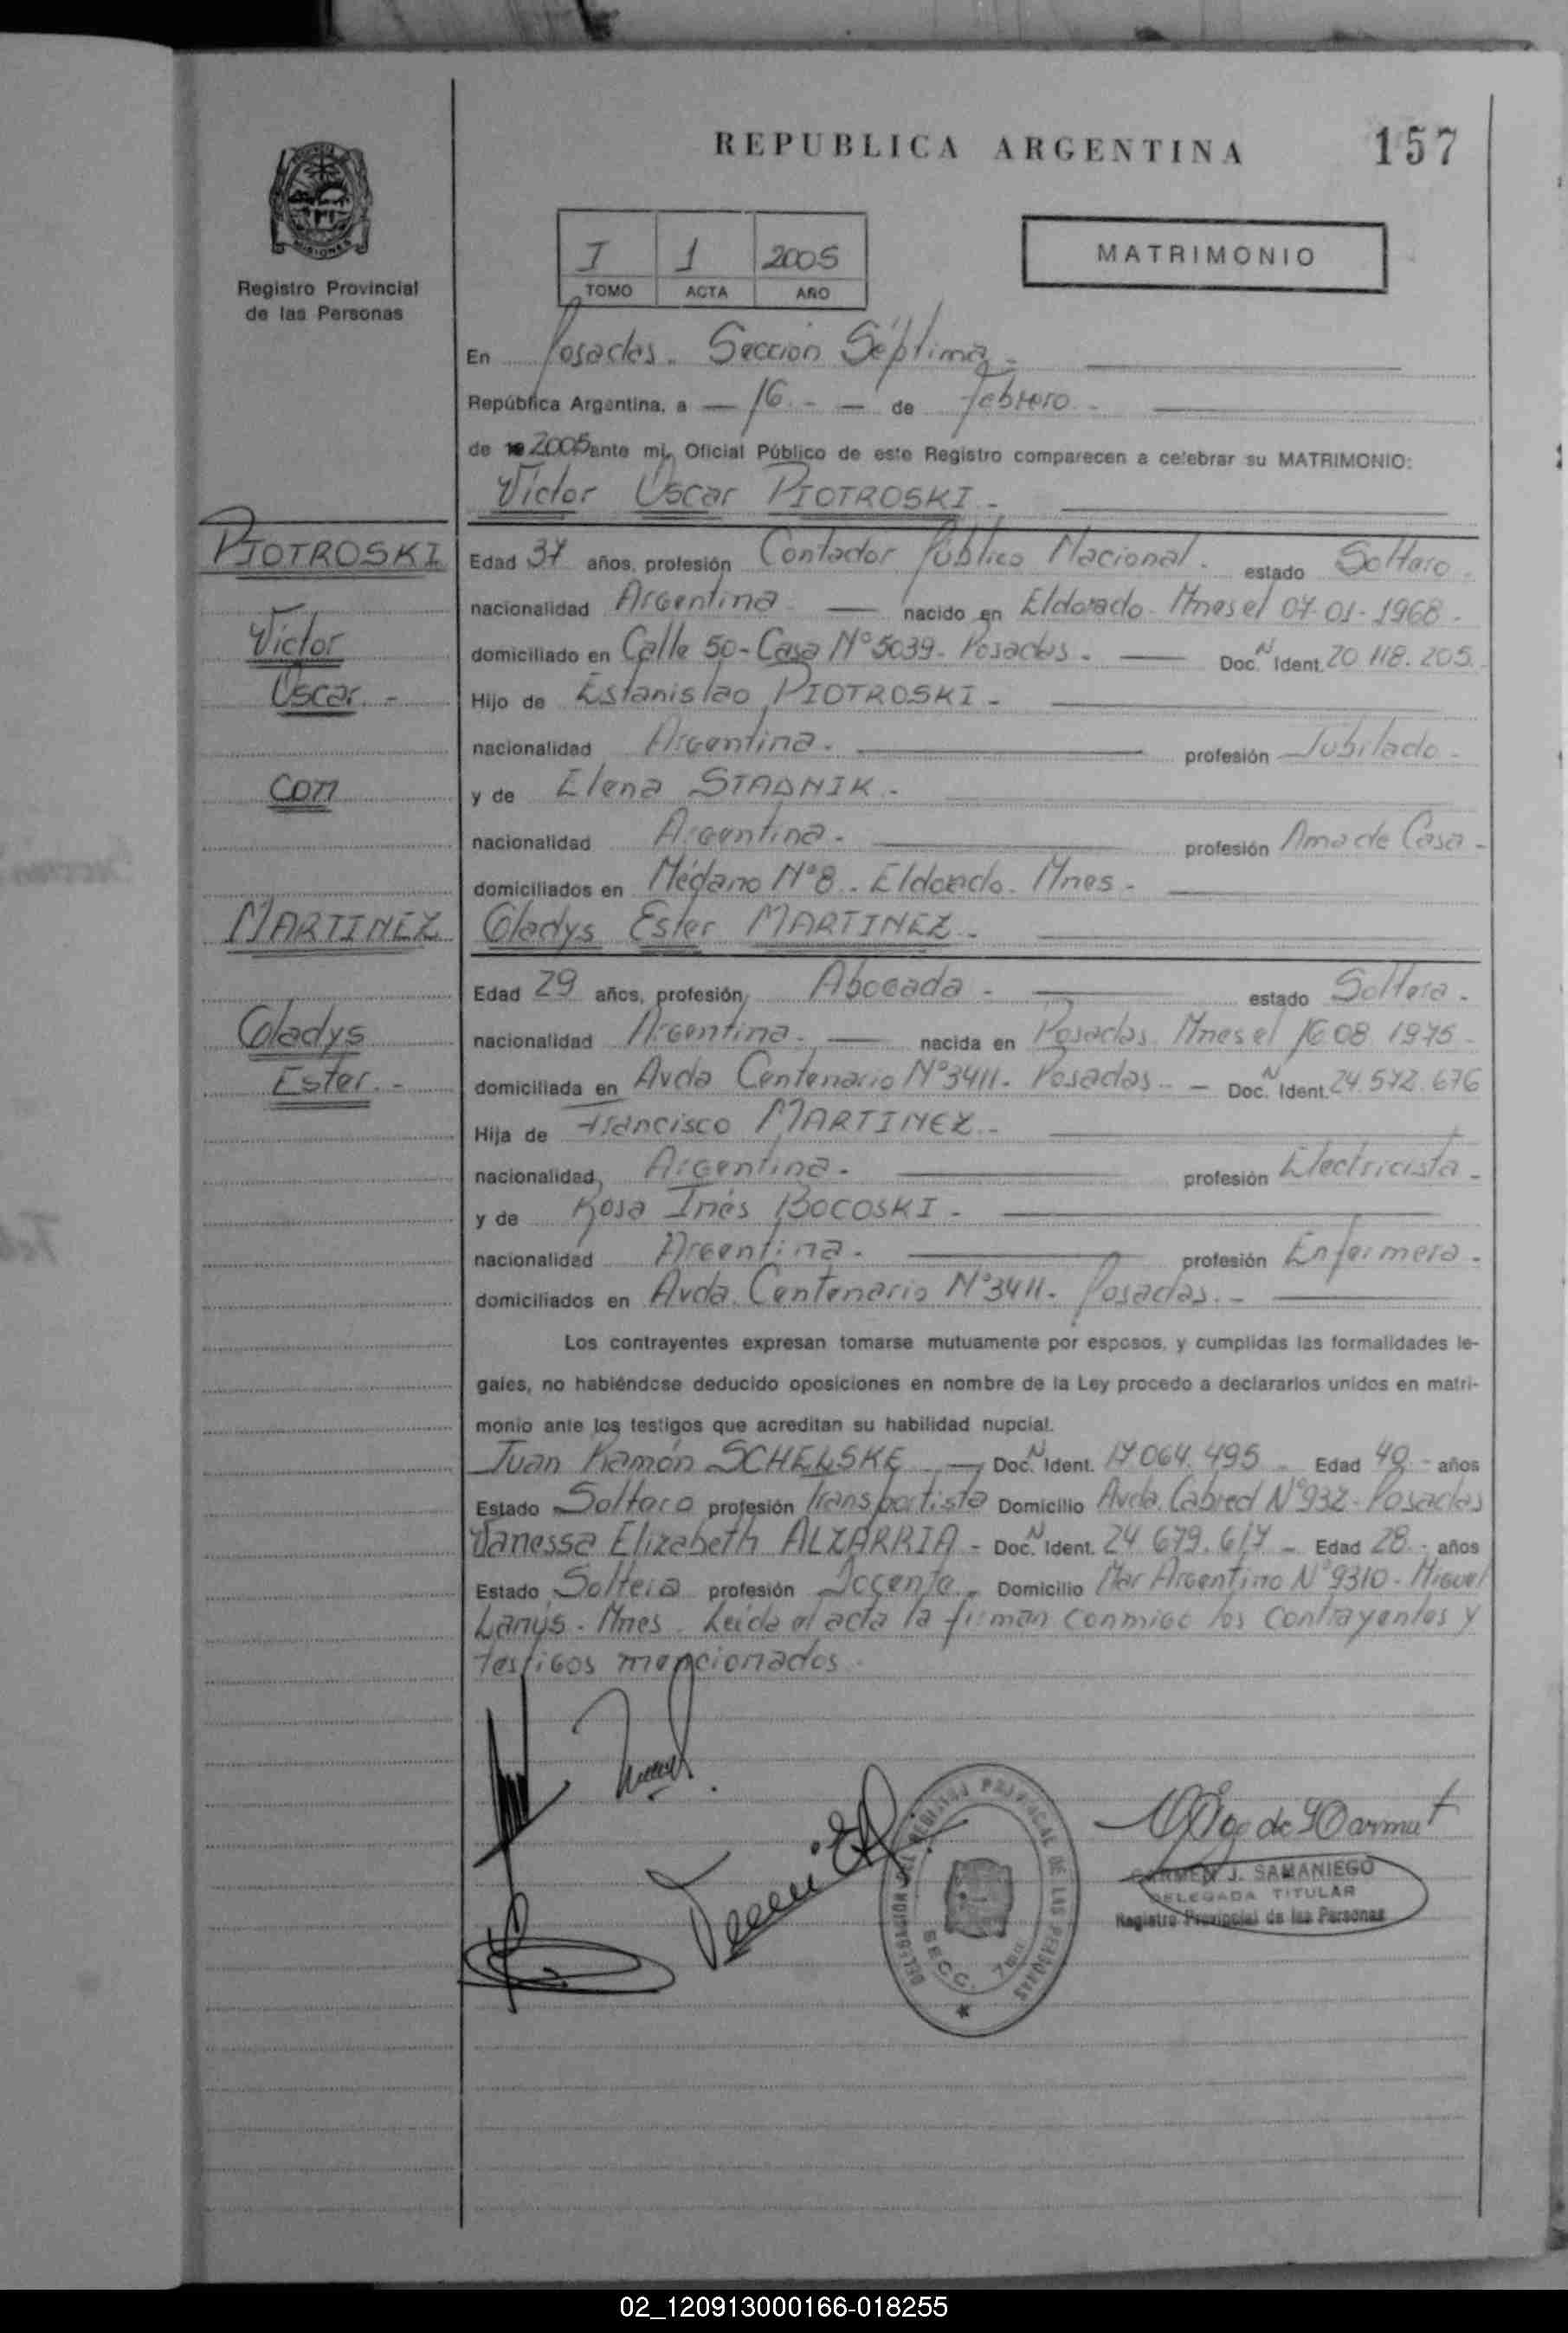 REPUBLICA ARGENTINA 157
MISIONES
Registro Provincial
de las Personas
I 1 2005
TOMO ACTA AÑO
MATRIMONIO
En Posadas. Sección Séptima.-
República Argentina, a — 16 - — de Febrero -
de 19 2005 ante mi, Oficial Público de este Registro comparecen a celebrar su MATRIMONIO:
Víctor Oscar PIOTROSKI -
PIOTROSKI
Víctor
Oscar. -
con
MARTINEZ
Gladys
Ester. -
Edad 37 años, profesión Contador Público Nacional. estado Soltero -
nacionalidad Argentina — nacido en Eldorado - Mnes el 07-01-1968 -
domiciliado en Calle 50 - Casa Nº 5039 - Posadas - — Doc. N Ident. 20.118.205.
Hijo de Estanislao PIOTROSKI -
nacionalidad Argentina. profesión Jubilado -
y de Elena STADNIK -
nacionalidad Argentina - profesión Ama de Casa -
domiciliados en Médano Nº 8 - Eldorado - Mnes -
Gladys Ester MARTINEZ -
Edad 29 años, profesión Abogada - estado Soltera -
nacionalidad Argentina. — nacida en Posadas Mnes el 16 08 1975 -
domiciliada en Avda Centenario Nº 3411 - Posadas - — Doc. N Ident. 24.572.676
Hija de Francisco MARTINEZ -
nacionalidad Argentina - profesión Electricista -
y de Rosa Inés BOCOSKI -
nacionalidad Argentina. profesión Enfermera -
domiciliados en Avda. Centenario Nº 3411 - Posadas. -
Los contrayentes expresan tomarse mutuamente por esposos, y cumplidas las formalidades le-
gales, no habiéndose deducido oposiciones en nombre de la Ley procedo a declararlos unidos en matri-
monio ante los testigos que acreditan su habilidad nupcial.
Juan Ramón SCHELSKE — Doc. N Ident. 17.064.495 - Edad 40 - años
Estado Soltero profesión Transportista Domicilio Avda. Cabred Nº 932 - Posadas
Vanessa Elizabeth ALZARRIA - Doc. N Ident. 24.679.617 - Edad 28 - años
Estado Soltera profesión Docente - Domicilio Mar Argentino Nº 9310 - Miguel
Lanús - Mnes. Leída el acta la firman conmigo los contrayentes y
testigos mencionados.
DELEGACION DEL REGISTRO PROVINCIAL DE LAS PERSONAS
SECC. 7ma
CARMEN J. SAMANIEGO
DELEGADA TITULAR
Registro Provincial de las Personas
02_120913000166-018255